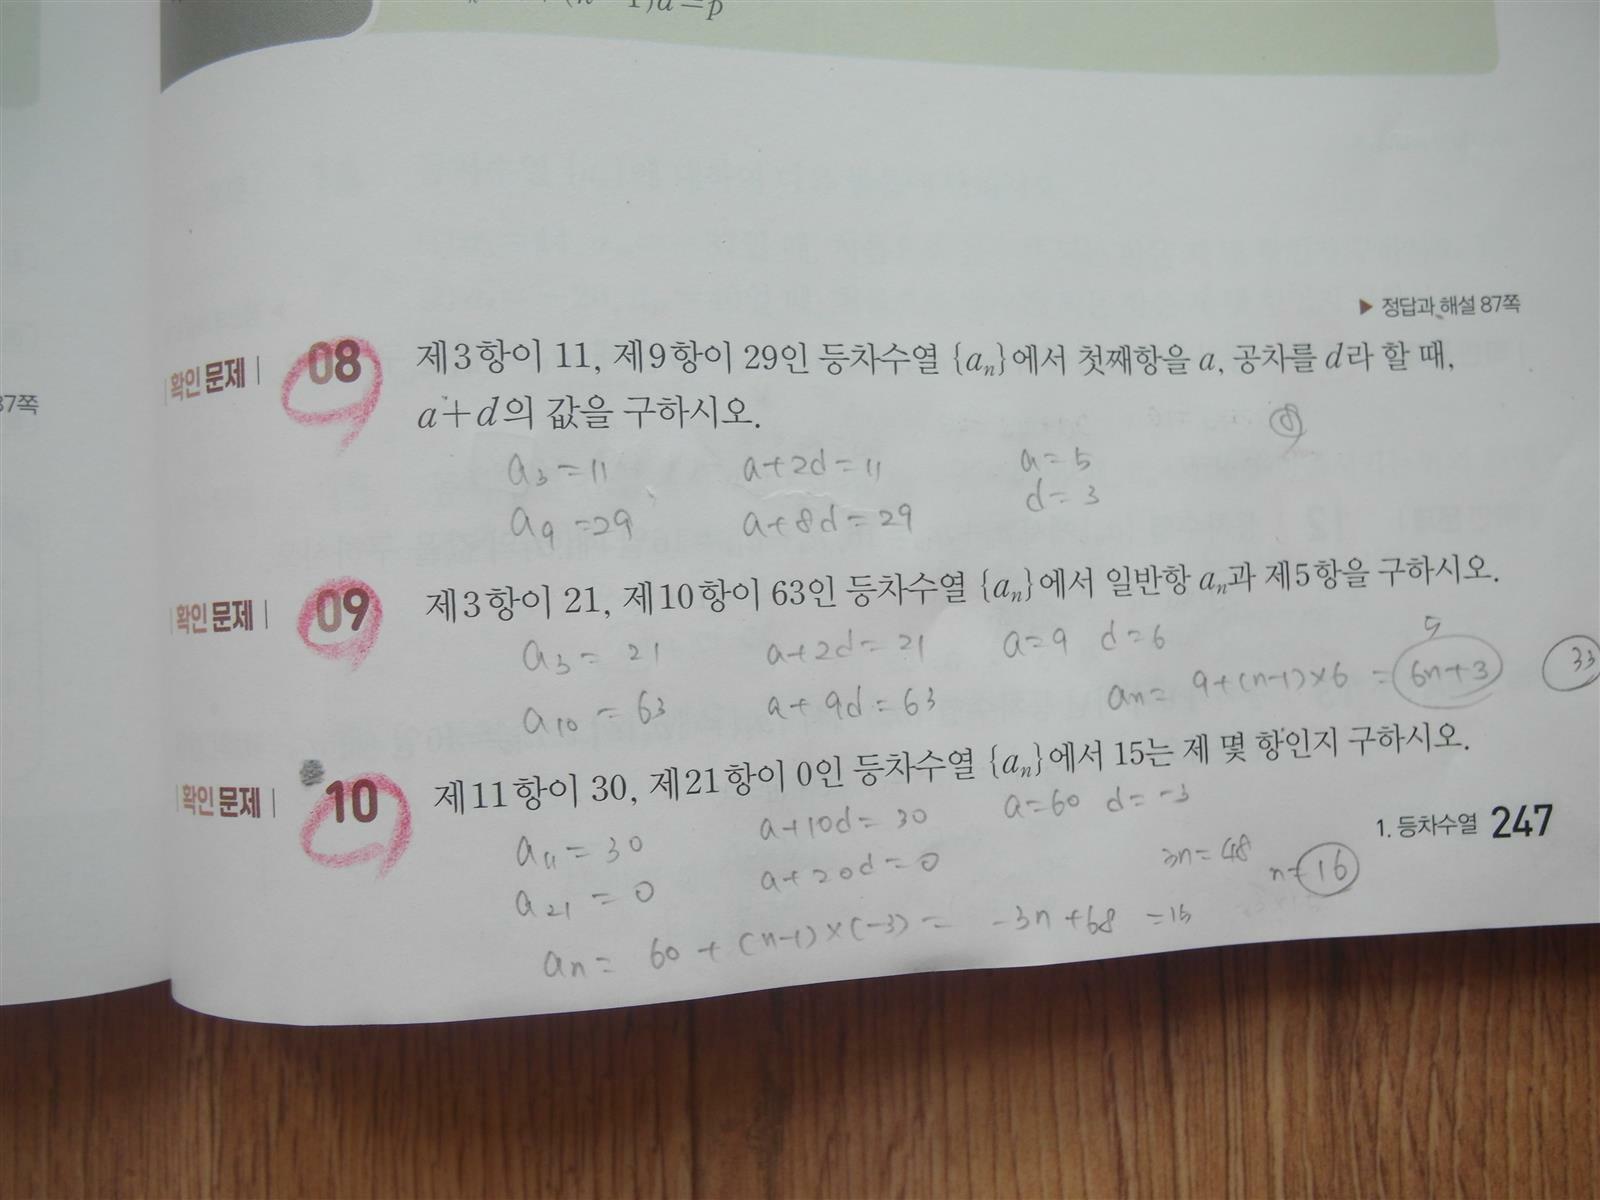 ▶ 정답과 해설 87쪽
87쪽
확인 문제 08 제3항이 11, 제9항이 29인 등차수열 {aₙ}에서 첫째항을 a, 공차를 d라 할 때,
a+d의 값을 구하시오.
8
a₃=11 a+2d=11 a=5
d=3
a₉=29 a+8d=29
확인 문제 09 제3항이 21, 제10항이 63인 등차수열 {aₙ}에서 일반항 aₙ과 제5항을 구하시오.
a₃=21 a+2d=21 a=9 d=6
5
a₁₀=63 a+9d=63 an=9+(n-1)×6=6n+3 33
확인 문제 10 제11항이 30, 제21항이 0인 등차수열 {aₙ}에서 15는 제 몇 항인지 구하시오.
a₁₁=30 a+10d=30 a=60 d=-3
1. 등차수열 247
a₂₁=0 a+20d=0 3n=48 n=16
an=60+(n-1)×(-3)=-3n+68=15